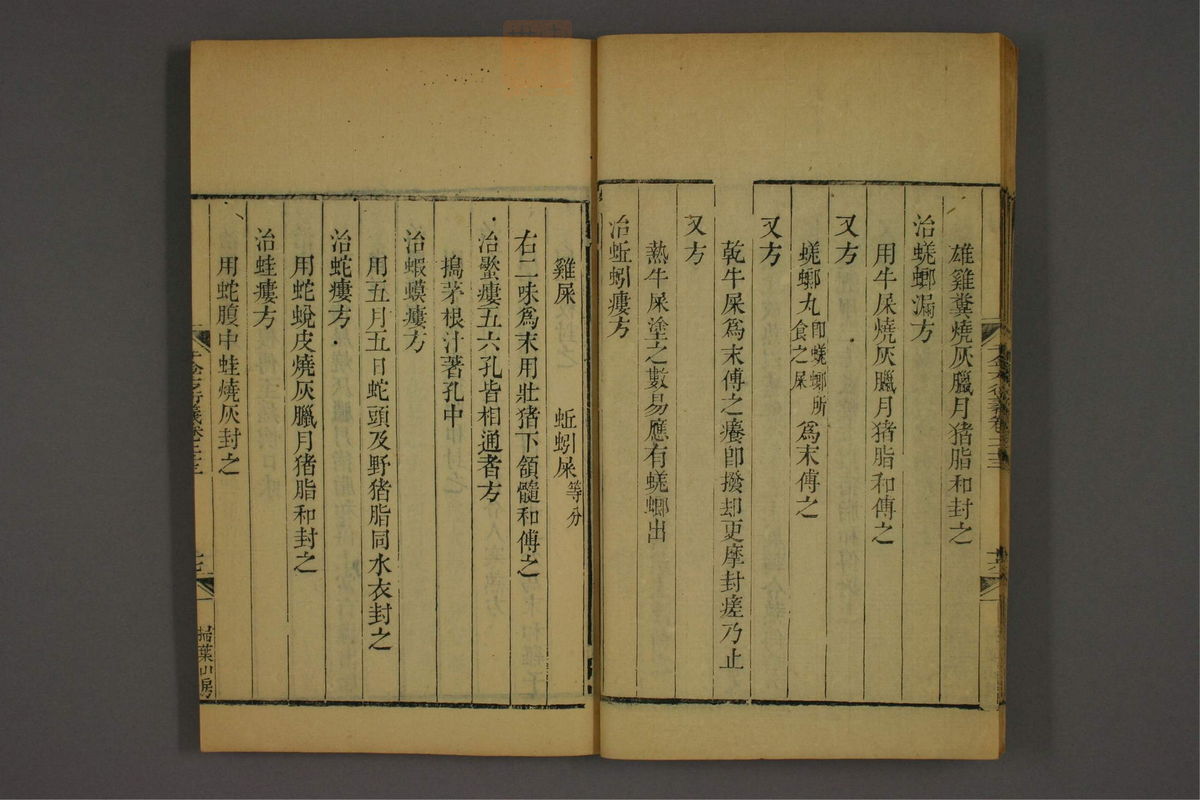 雄雞糞燒灰臘月猪脂和封之
治蜣螂漏方
用牛屎燒灰臘月猪脂和傅之
又方
蜣螂丸即蜣螂所食之屎爲末傅之
又方
乾牛屎爲末傅之癢卽撥却更摩封瘥乃止
又方
熱牛屎塗之數易應有蜣螂出
治蚯蚓瘻方
雞屎 蚯蚓屎等分
右二味爲末用壯猪下頷髓和傅之
治螿瘻五六孔皆相通者方
搗茅根汁著孔中
治蝦蟆瘻方
用五月五日蛇頭及野猪脂同水衣封之
治蛇瘻方
用蛇蛻皮燒灰臘月猪脂和封之
治蛙瘻方
用蛇腹中蛙燒灰封之
掃葉山房